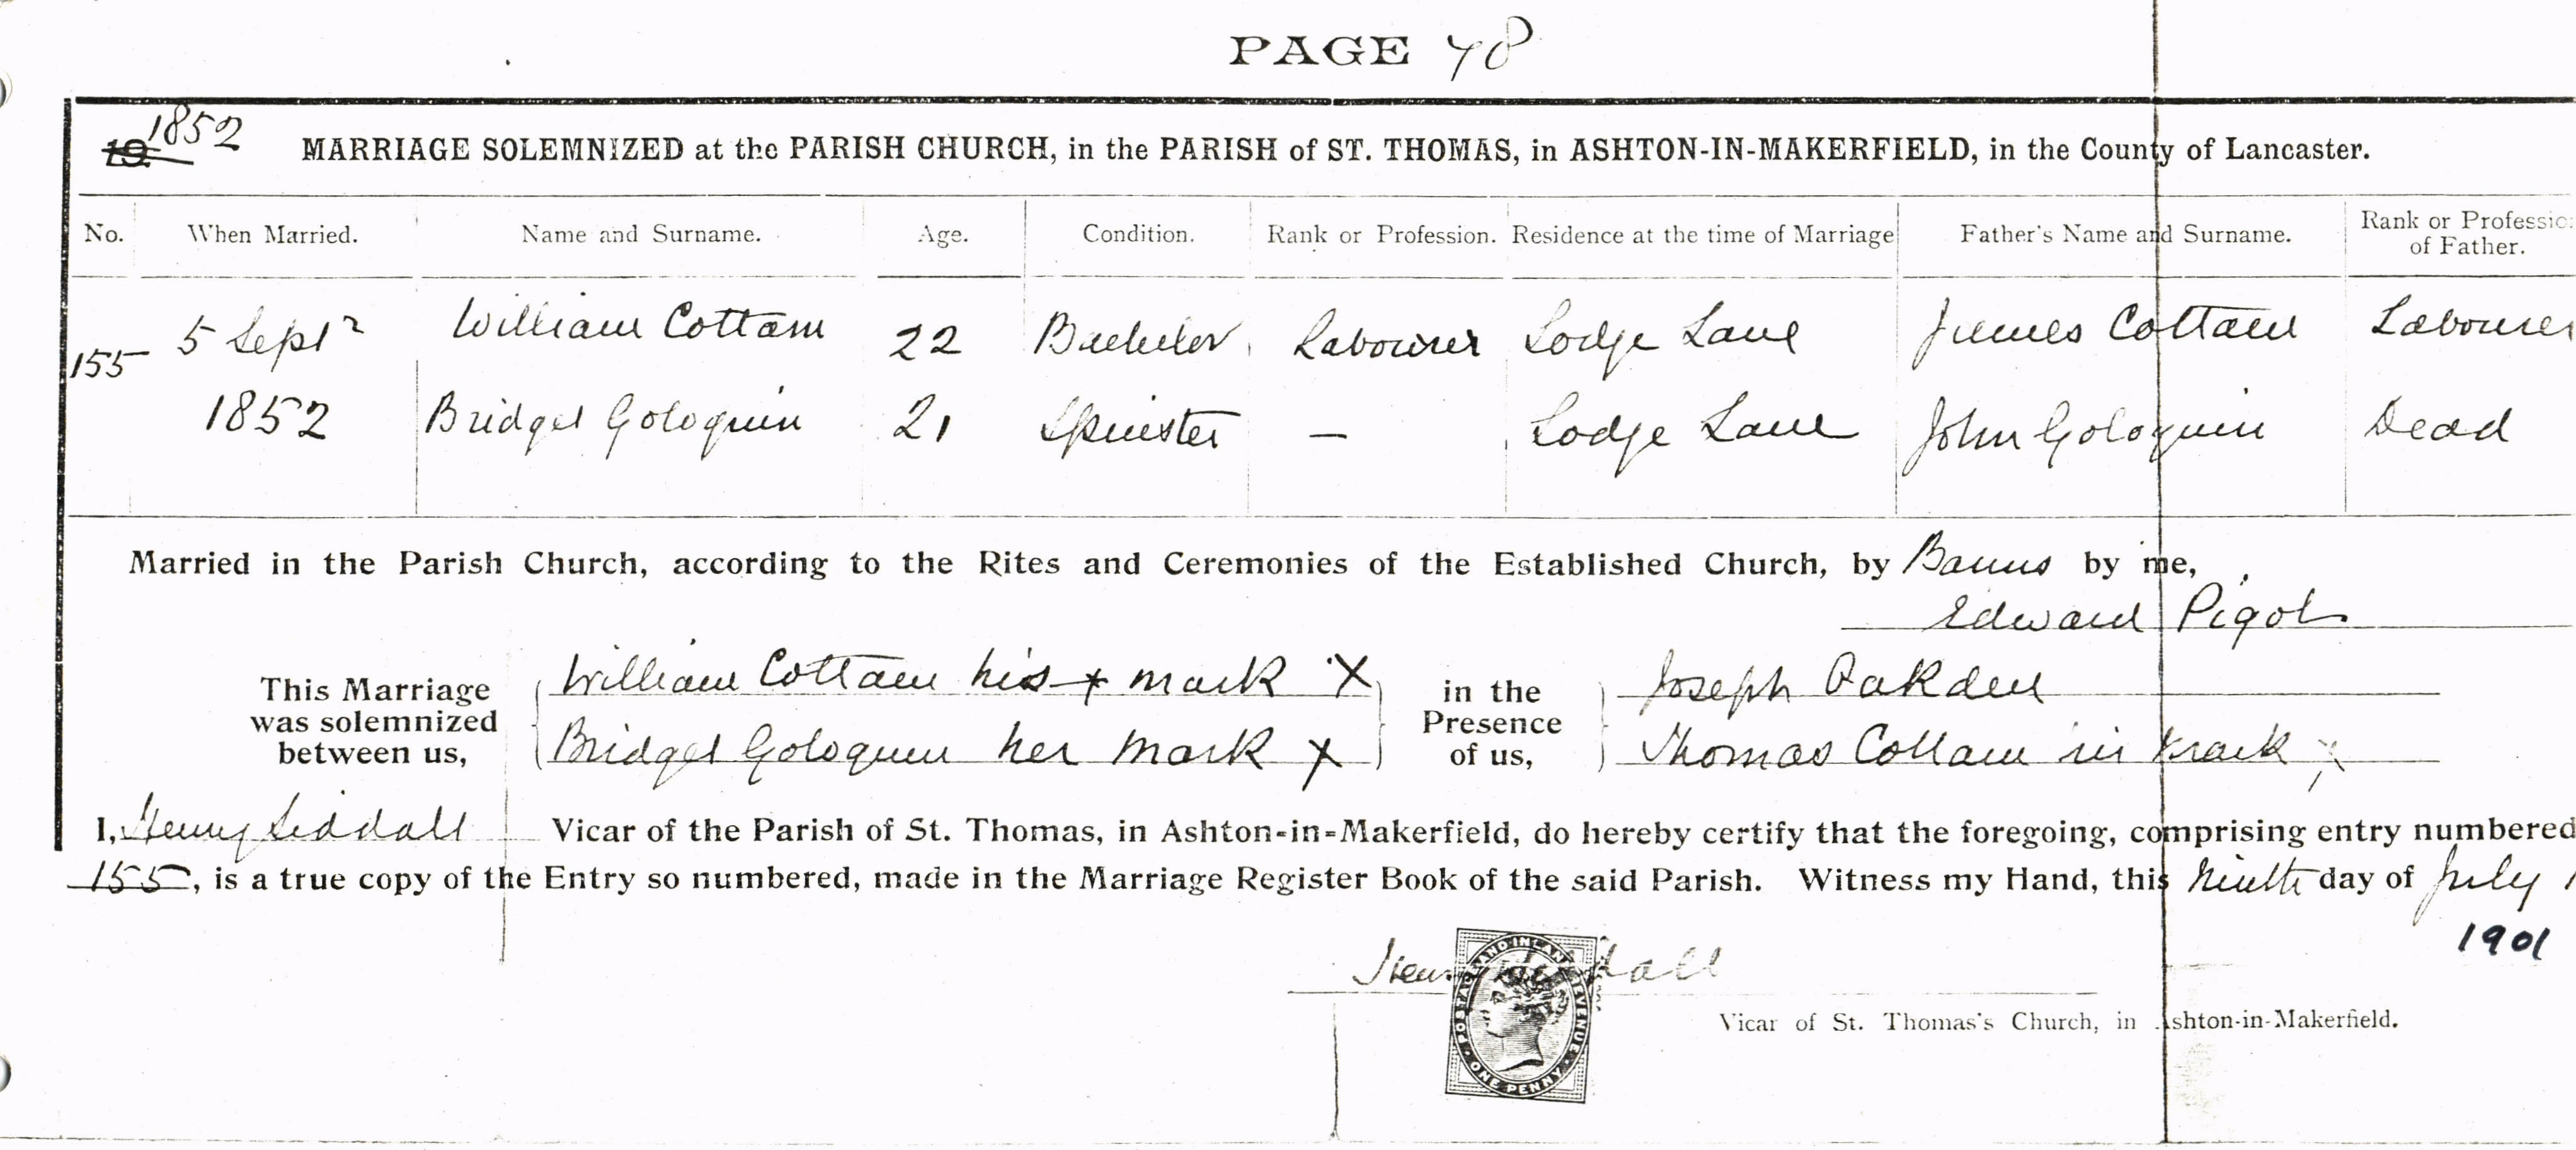 PAGE 78
19 1852 MARRIAGE SOLEMNIZED at the PARISH CHURCH, in the PARISH of ST. THOMAS, in ASHTON-IN-MAKERFIELD, in the County of Lancaster.
No. When Married. Name and Surname. Age. Condition. Rank or Profession. Residence at the time of Marriage Father's Name and Surname. Rank or Professio
of Father.
155 5 Sept r William Cottam 22 Bachelor Labourer Lodge Lane James Cottam Labourer
1852 Bridget Goloquin 21 Spinster — Lodge Lane John Goloquin Dead
Married in the Parish Church, according to the Rites and Ceremonies of the Established Church, by Banns by me,
Edward Pigot
This Marriage was solemnized between us,
William Cottam his x mark X
Bridget Goloquin her mark X
in the Presence of us,
Joseph Oakden
Thomas Cottam mark x
I, Henry Siddall Vicar of the Parish of St. Thomas, in Ashton-in-Makerfield, do hereby certify that the foregoing, comprising entry numbered
155, is a true copy of the Entry so numbered, made in the Marriage Register Book of the said Parish. Witness my Hand, this Ninth day of July
1901
POSTAGE AND INLAND REVENUE
ONE PENNY
Vicar of St. Thomas's Church, in Ashton-in-Makerfield.